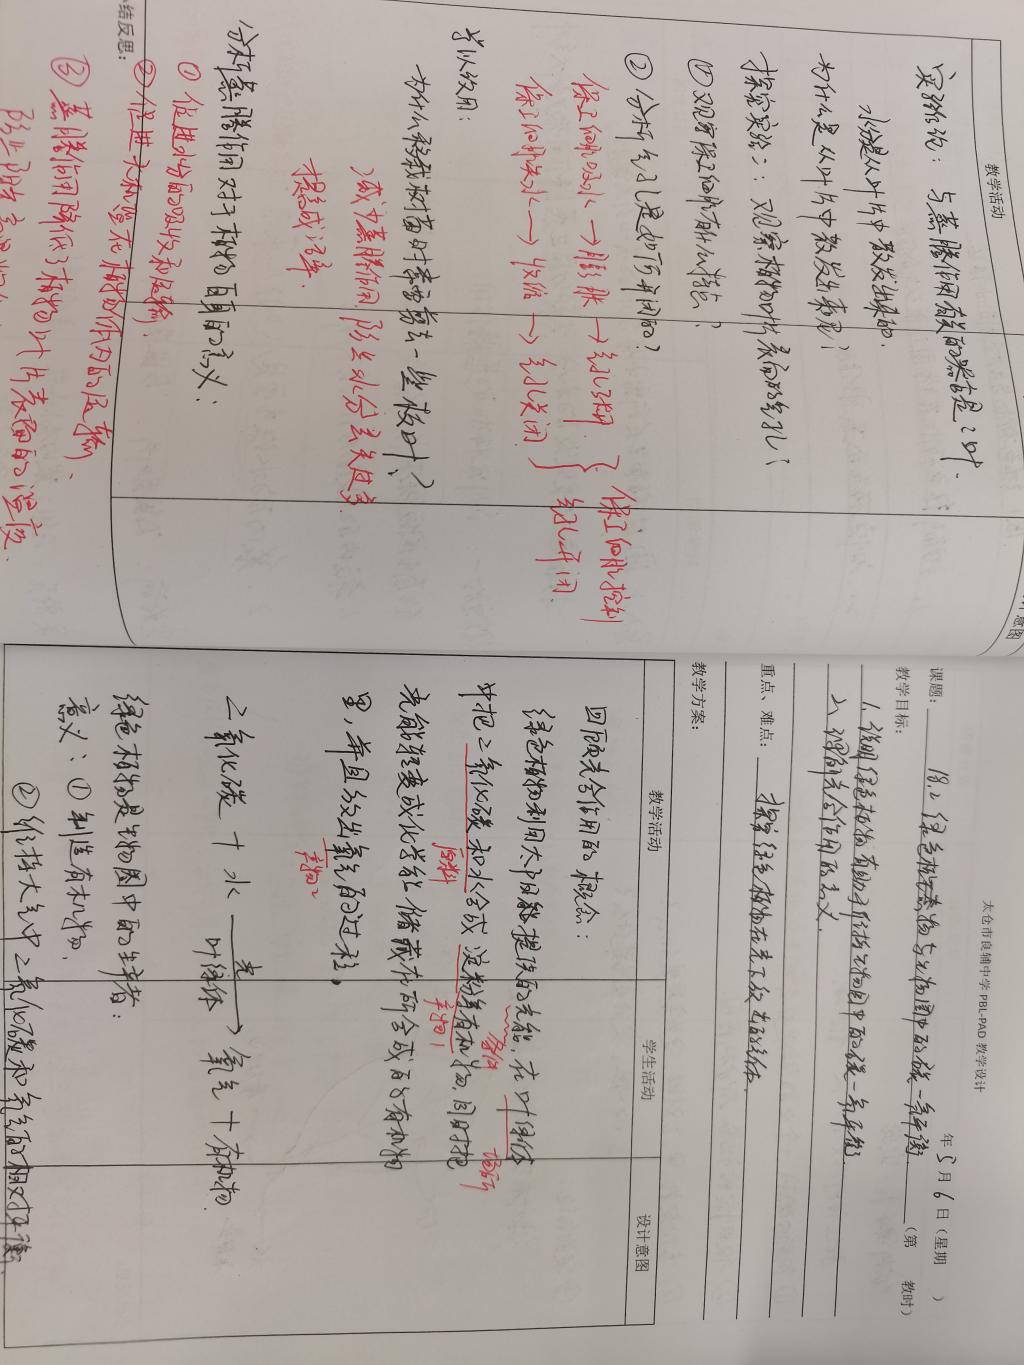 教学活动
实验结论：与蒸腾作用有关的器官是：叶.
水分是从叶片中散发出来的.
为什么是从叶片中散发出来呢？
探究实验二：观察植物叶片表面的气孔：
① 观察保卫细胞有什么特点？
② 分析气孔是如何开闭的？
保卫细胞吸水→膨胀→气孔张开
保卫细胞失水→收缩→气孔关闭
保卫细胞控制
气孔开闭.
学以致用：
为什么移栽树苗时需要剪去一些枝叶？
减少蒸腾作用，防止水分丢失过多
提高成活率.
分析蒸腾作用对于植物自身的意义：
① 促进水分的吸收和运输；
② 促进无机盐在植物体内的运输、
小结反思：
③ 蒸腾作用降低了植物叶片表面的温度.
意图
太仓市良辅中学 PBL-PAD 教学设计
年 5 月 6 日（星期 ）
课题： 18.2 绿色植物与生物圈中的碳—氧平衡 （第 教时）
教学目标：
1. 说明绿色植物有助于维持生物圈中的碳—氧平衡.
2. 光合作用的意义.
重点、难点： 探究绿色植物在光下放出的气体.
教学方案：
教学活动 学生活动 设计意图
回顾光合作用的概念：
绿色植物利用太阳能提供的光能，在叶绿体
条件 场所
并把二氧化碳和水合成淀粉等有机物，同时把
原料 产物1
光能转变成化学能，储藏在所合成的有机物
里，并且释放出氧气的过程。
产物2
二氧化碳 + 水 光 叶绿体 → 氧气 + 有机物.
绿色植物是生物圈中的生产者：
意义：① 制造有机物.
② 维持大气中二氧化碳和氧气的相对平衡.